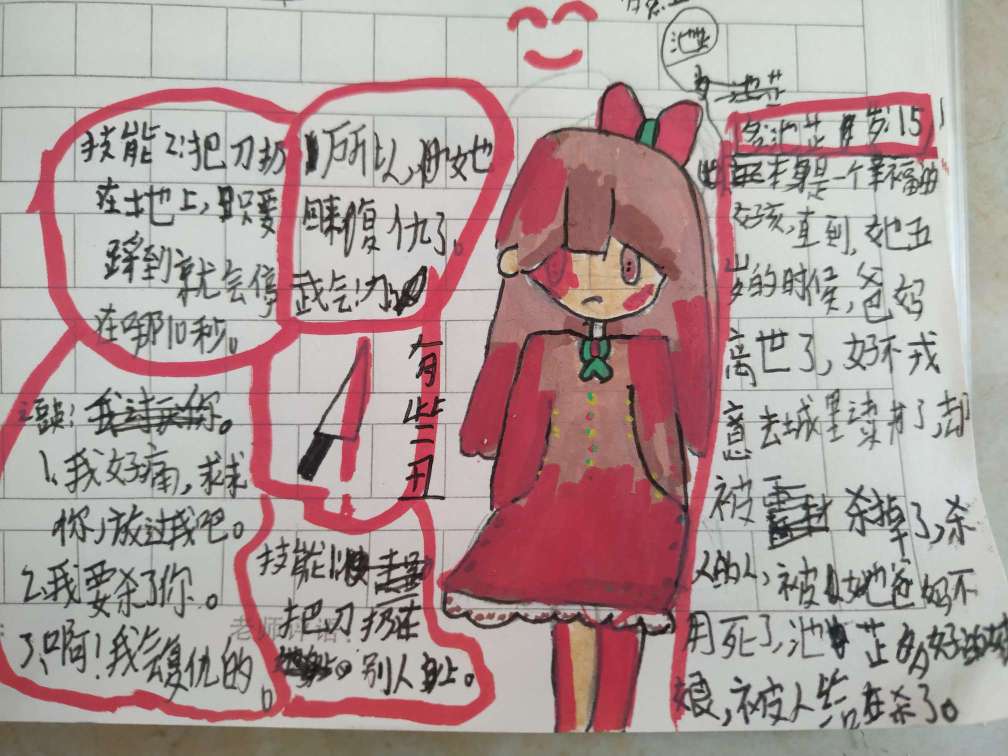 池芷
池芷
池芷 岁:15
本身是一个幸福的
女孩,直到,她五
岁的时候,爸妈
离世了,好不戎
意去城里读书了,却
被 杀掉了,杀
人的人,被她爸妈不
用死了,池芷多好的姑
娘,被人给 杀了。
技能2:把刀扔
在土地上,只要
踩到就会停
在哪10秒。
所以,她
回来復仇了。
武气:刀
有些丑
语:我诗 你。
1.我好痛,求求
你,放过我吧。
2.我要杀了你。
3,啊!我会复仇的。
技能1:
把刀扔在
别人身上。
老师评语: